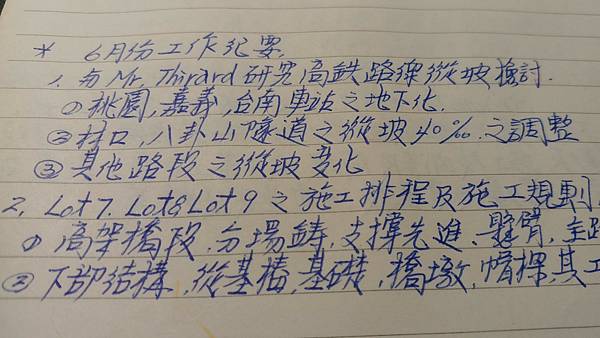 * 6月份工作纪要.
1. 与Mr. Thirard研究高鉄路線縱坡檢討.
① 桃園, 嘉義, 台南車站之地下化.
② 林口, 八卦山隧道之縱坡40‰之調整
③ 其他路段之縱坡变化
2. Lot7. Lot8 Lot9 之施工排程及施工規劃
① 高架橋段. 分場鋳. 支撑先進、懸臂, 全跨
② 下部結構, 從基樁, 基礎, 橋墩, 帽樑, 其工